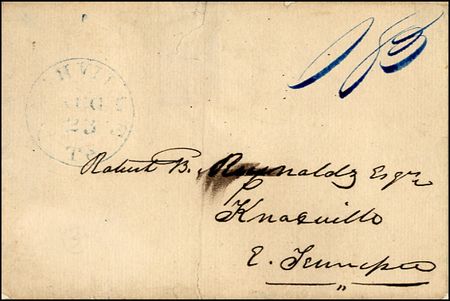 AUG
23
Te
Robert B. Reynolds Esqr
Knoxville
E. Tennessee